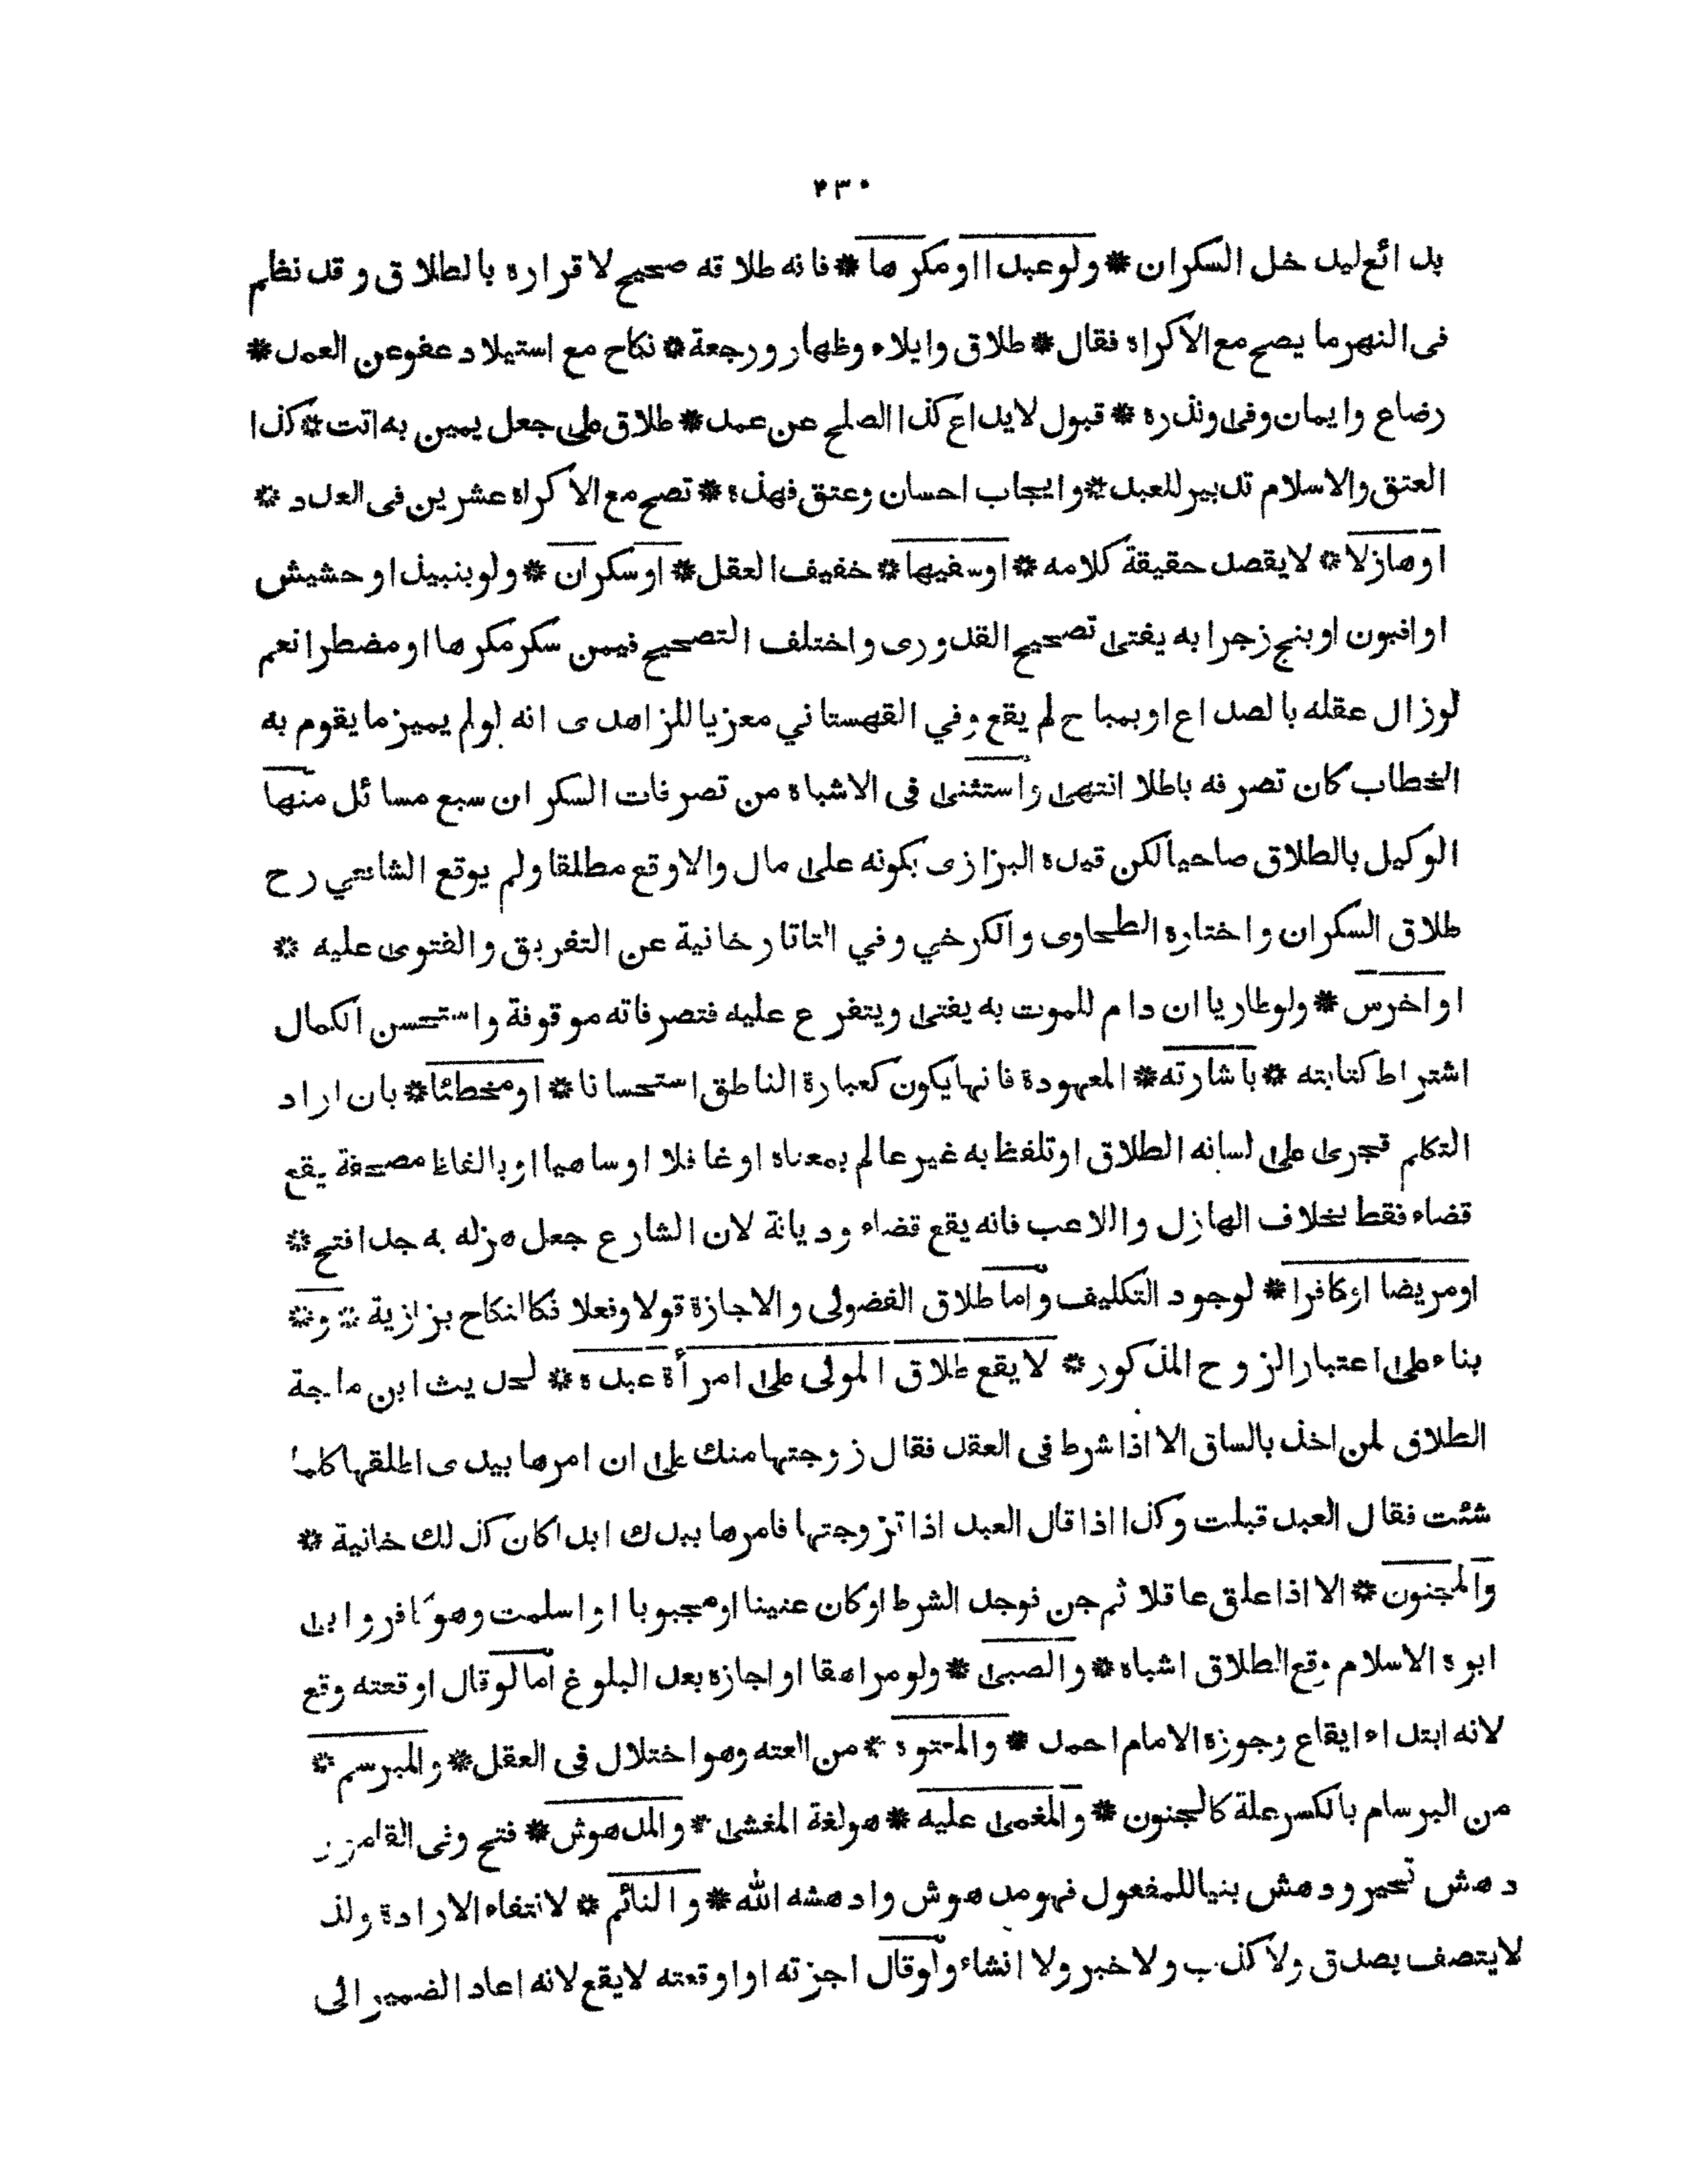 ٢٣٠
بدائع ليدخل السكران * ولو عبدا او مكرها * فانه طلاقه صحيح لا قراره بالطلاق وقد نظم
فى النهر ما يصح مع الاكراه فقال * طلاق وايلاء وظهار ورجعة * نكاح مع استيلاد عفو عن العمد *
رضاع وايمان وفى ونذره * قبول لايداع كذا الصلح عن عمد * طلاق على جعل يمين به اتت * كذا
العتق والاسلام تدبير للعبد * وايجاب احسان وعتق فهذه * تصح مع الاكراه عشرين فى العدد *
او هازلا * لا يقصد حقيقة كلامه * او سفيها * خفيف العقل * او سكران * ولو بنبيذ او حشيش
او افيون او بنج زجرا به يفتى تصحيح القدورى واختلف التصحيح فيمن سكر مكرها او مضطرا نعم
لو زال عقله بالصداع او بمباح لم يقع وفي القهستاني معزيا للزاهدى انه لو لم يميز ما يقوم به
الخطاب كان تصرفه باطلا انتهى واستثنى فى الاشباه من تصرفات السكران سبع مسائل منها
الوكيل بالطلاق صاحيا لكن قيده البزازى بكونه على مال والا وقع مطلقا ولم يوقع الشافعي رح
طلاق السكران واختاره الطحاوى والكرخي وفي التاتارخانية عن التفريق والفتوى عليه *
او اخرس * ولو طاريا ان دام للموت به يفتى ويتفرع عليه فتصرفاته موقوفة واستحسن الكمال
اشتراط كتابته * باشارته * المعهودة فانها يكون كعبارة الناطق استحسانا * او مخطئا * بان اراد
التكلم فجرى على لسانه الطلاق او تلفظ به غير عالم بمعناه او غافلا او ساهيا او بالفاظ مصحفة يقع
قضاء فقط بخلاف الهازل واللاعب فانه يقع قضاء وديانة لان الشارع جعل هزله به جدا فتح *
او مريضا او كافرا * لوجود التكليف واما طلاق الفضولى والاجازة قولا وفعلا فكالنكاح بزازية * و *
بناء على اعتبار الزوج المذكور * لا يقع طلاق المولى على امرأة عبده * لحديث ابن ماجة
الطلاق لمن اخذ بالساق الا اذا شرط فى العقد فقال زوجتها منك على ان امرها بيدى اطلقها كلما
شئت فقال العبد قبلت وكذا اذا قال العبد اذا تزوجتها فامرها بيدك ابدا كان كذلك خانية *
والمجنون * الا اذا علق عاقلا ثم جن فوجد الشرط او كان عنينا او مجبوبا او اسلمت وهو كافر وابى
ابوه الاسلام وقع الطلاق اشباه * والصبى * ولو مراهقا او اجازه بعد البلوغ اما لو قال اوقعته وقع
لانه ابتداء ايقاع وجوزه الامام احمد * والمعتوه * من العته وهو اختلال فى العقل * والمبرسم *
من البرسام بالكسر علة كالجنون * والمغمى عليه * هو لغة المغشى * والمدهوش * فتح وفى القاموس
دهش تحير ودهش بنيا للمفعول فهو مدهوش وادهشه الله * والنائم * لانتفاء الارادة ولذ
لا يتصف بصدق ولا كذب ولا خبر ولا انشاء ولو قال اجزته او اوقعته لا يقع لانه اعاد الضمير الى